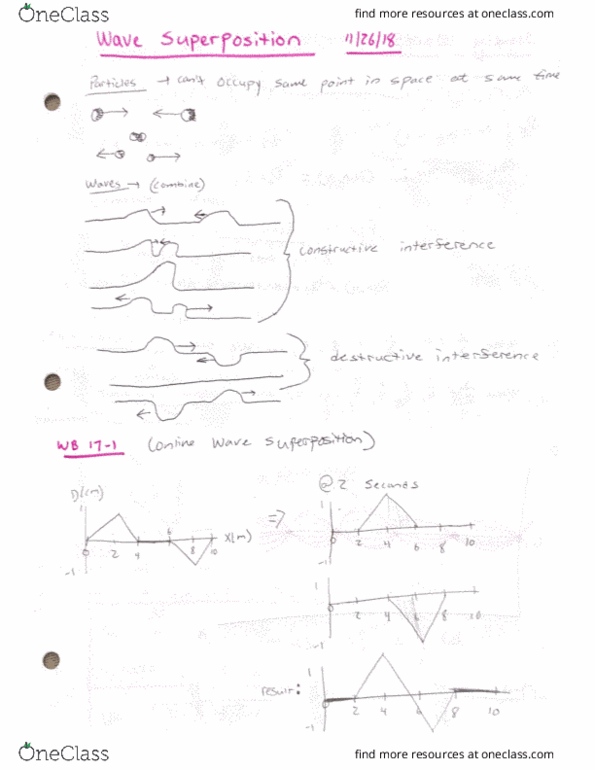 OneClass
find more resources at oneclass.com
Wave Superposition 11/26/18
Particles → can't occupy same point in space at same time
Waves → (combine)
constructive interference
destructive interference
WB 17-1 (online Wave Superposition)
@ 2 seconds
D(cm)
1
0 2 4 6 8 10 X(m)
-1
⇒
1
0 2 4 6 8 10
-1
1
0 2 4 6 8 10
-1
result:
1
0 2 4 6 8 10
-1
OneClass
find more resources at oneclass.com